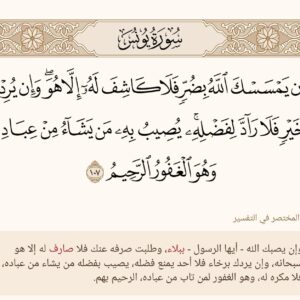 سُورَةُ يُونُسَ
ن يَمْسَسْكَ ٱللَّهُ بِضُرٍّ فَلَا كَاشِفَ لَهُۥٓ إِلَّا هُوَ ۖ وَإِن يُرِدْ
خَيْرٍ فَلَا رَآدَّ لِفَضْلِهِۦ ۚ يُصِيبُ بِهِۦ مَن يَشَآءُ مِنْ عِبَادِ
وَهُوَ ٱلْغَفُورُ ٱلرَّحِيمُ ١٠٧
المختصر في التفسير
وإن يصبك الله - أيها الرسول - ببلاء، وطلبت صرفه عنك فلا صارف له إلا هو
سبحانه، وإن يردك برخاء فلا أحد يمنع فضله، يصيب بفضله من يشاء من عباده،
فلا مكره له، وهو الغفور لمن تاب من عباده، الرحيم بهم.